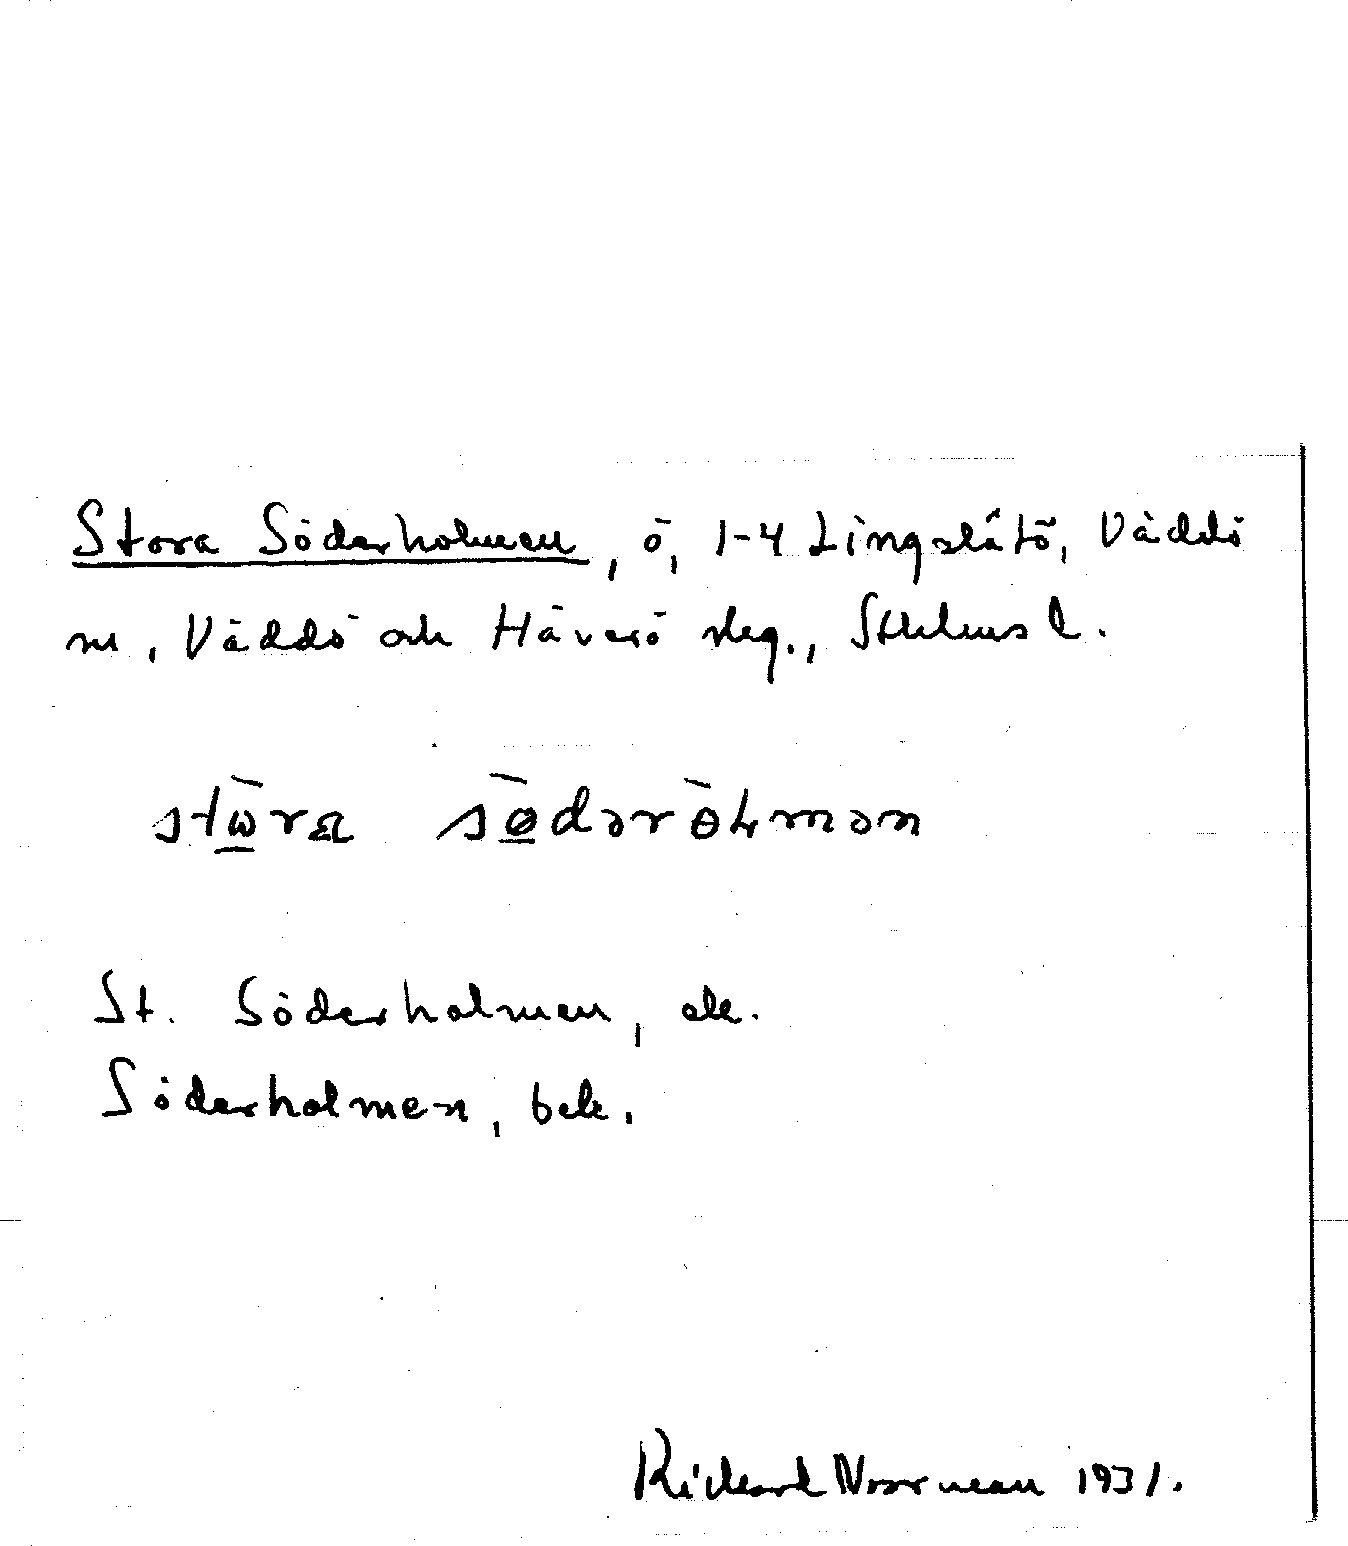 Stora Söderholmen, ö, 1-4 Lingslätö, Väddö
sn, Väddö och Häverö skg., Sthlms l.
St. Söderholmen, ek.
Söderholmen, bek.
Richard Norrman 1931.